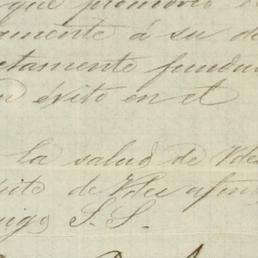 que promovió e
amente á su de
ctamente funda
n éxito en el
la salud de Vdes
ito de Vdes afmo
migo S. S.